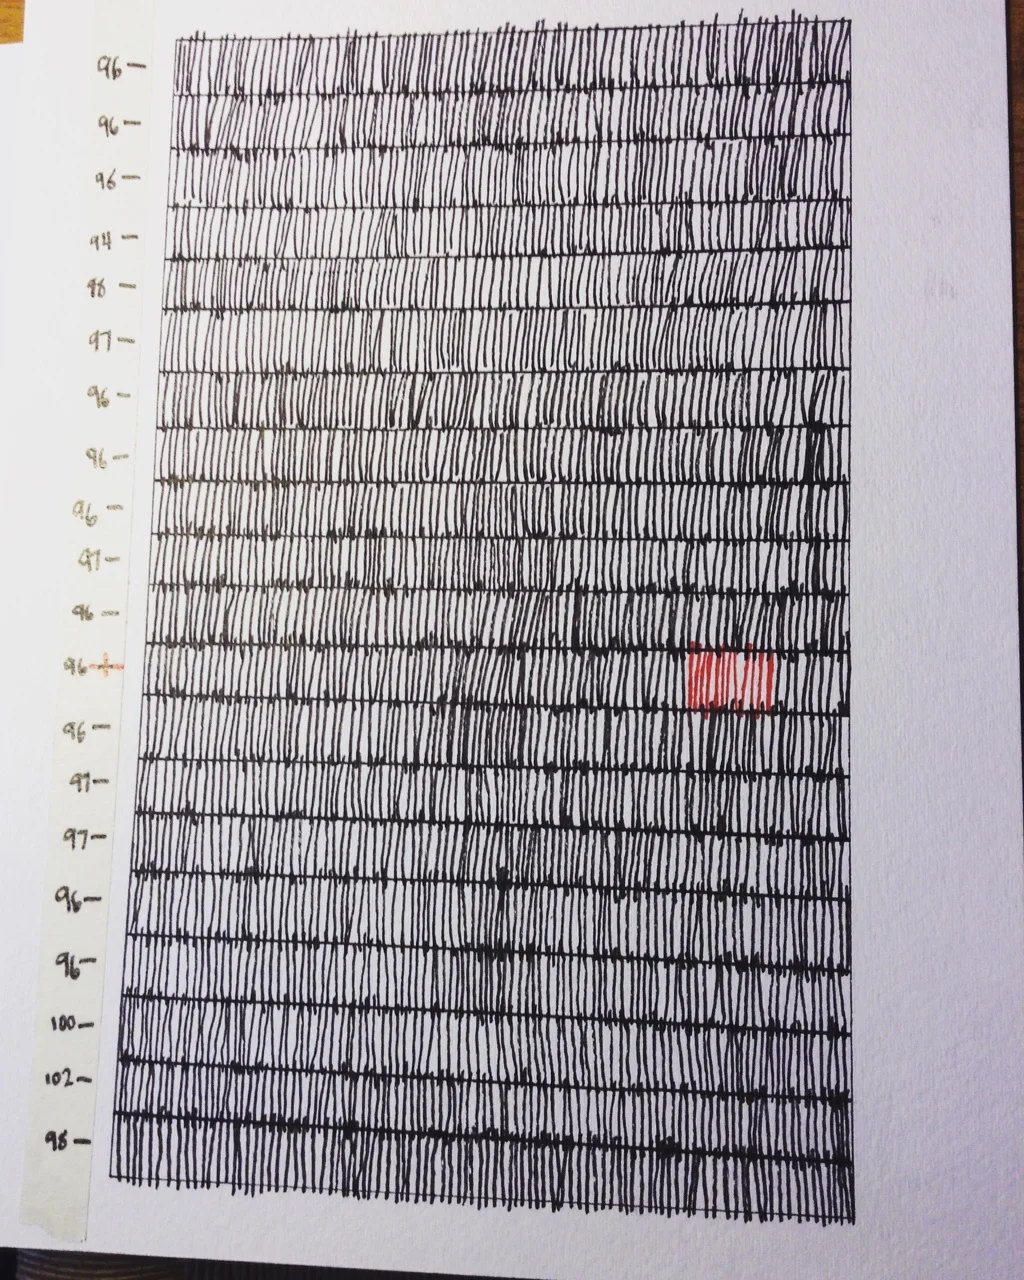 96 –
96 –
96 –
94 –
98 –
97 –
96 –
96 –
96 –
97 –
96 –
96 –
96 –
97 –
97 –
96 –
96 –
100 –
102 –
98 –